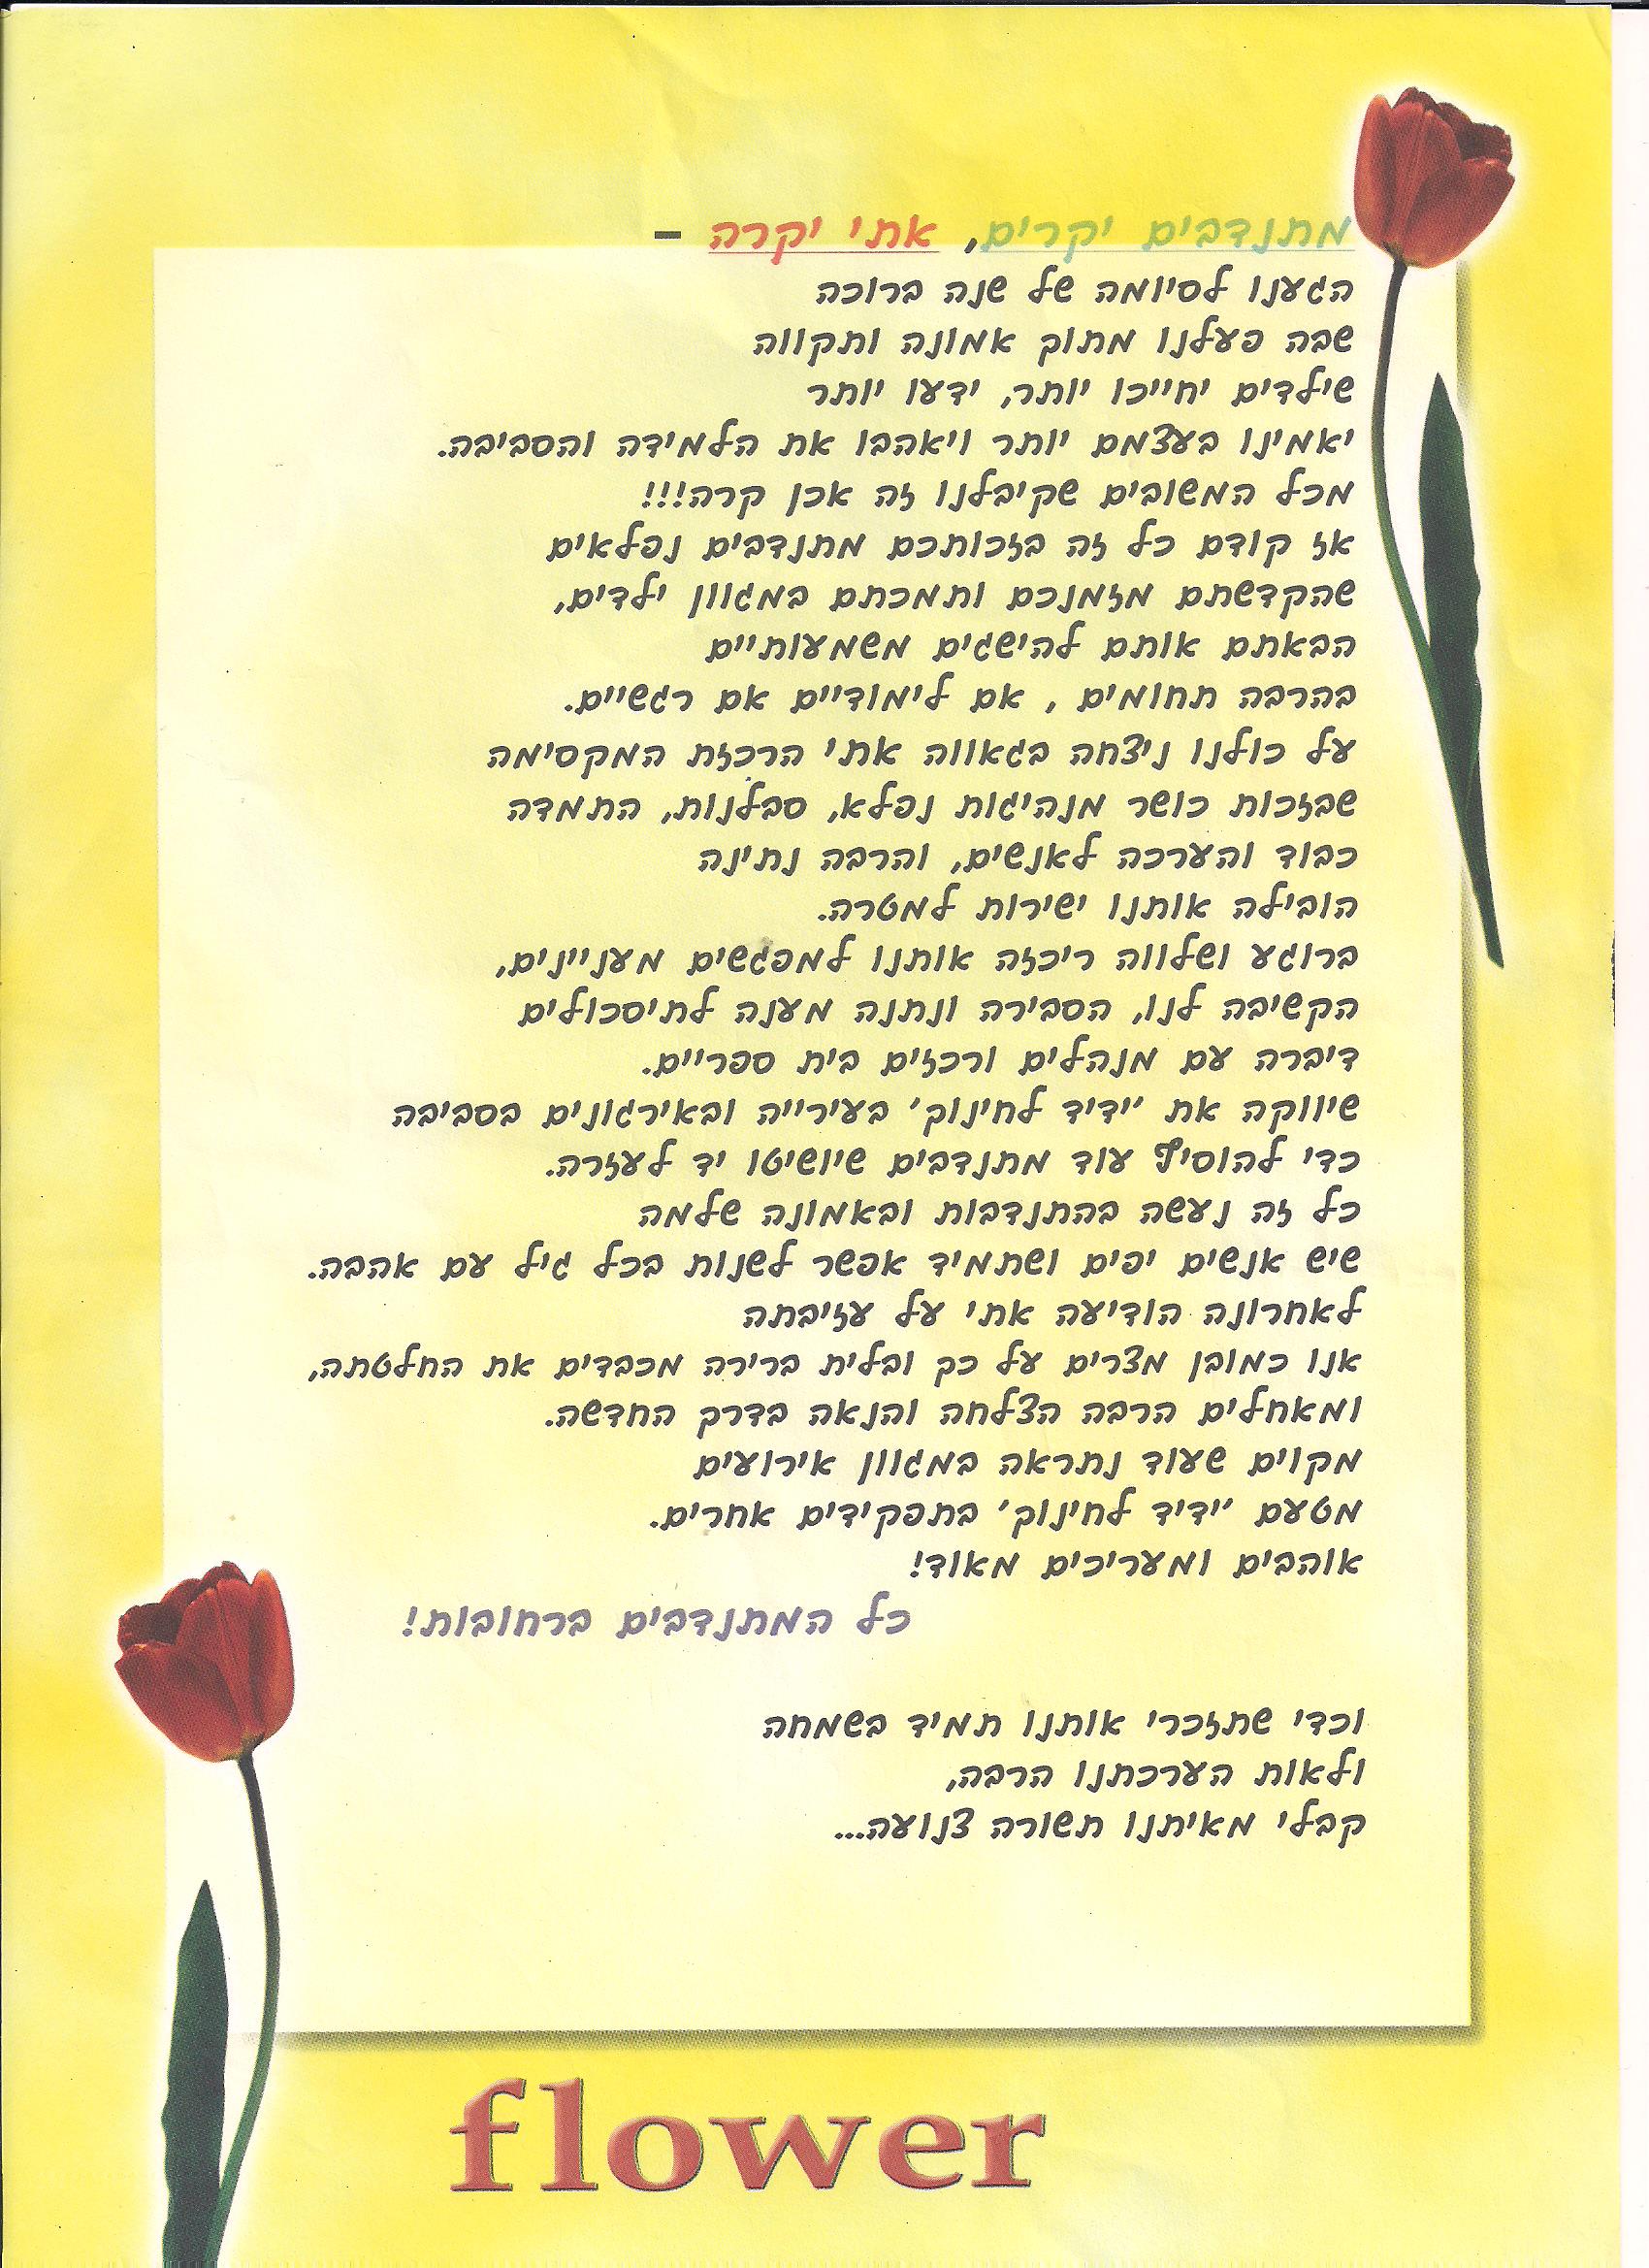 מתנדבים יקרים, אתי יקרה –
הגענו לסיומה של שנה ברוכה
שבה פעלנו מתוך אמונה ותקווה
שילדים יחייכו יותר, ידעו יותר
יאמינו בעצמם יותר ויאהבו את הלמידה והסביבה.
מכל המשובים שקיבלנו זה אכן קרה!!!
אז קודם כל זה בזכותכם מתנדבים נפלאים
שהקדשתם מזמנכם ותמכתם במגוון ילדים,
הבאתם אותם להישגים משמעותיים
בהרבה תחומים , אם לימודיים אם רגשיים.
על כולנו ניצחה בגאווה אתי הרכזת המקסימה
שבזכות כושר מנהיגות נפלא, סבלנות, התמדה
כבוד והערכה לאנשים, והרבה נתינה
הובילה אותנו ישירות למטרה.
ברוגע ושלווה ריכזה אותנו למפגשים מעניינים,
הקשיבה לנו, הסבירה ונתנה מענה לתיסכולים
דיברה עם מנהלים ורכזים בית ספריים.
שיווקה את 'ידיד לחינוך' בעירייה ובאירגונים בסביבה
כדי להוסיף עוד מתנדבים שיושיטו יד לעזרה.
כל זה נעשה בהתנדבות ובאמונה שלמה
שיש אנשים יפים ושתמיד אפשר לשנות בכל גיל עם אהבה.
לאחרונה הודיעה אתי על עזיבתה
אנו כמובן מצרים על כך ובלית ברירה מכבדים את החלטתה,
ומאחלים הרבה הצלחה והנאה בדרך החדשה.
מקוים שעוד נתראה במגוון אירועים
מטעם 'ידיד לחינוך' בתפקידים אחרים.
אוהבים ומעריכים מאוד!
כל המתנדבים ברחובות!
וכדי שתזכרי אותנו תמיד בשמחה
ולאות הערכתנו הרבה,
קבלי מאיתנו תשורה צנועה...
flower